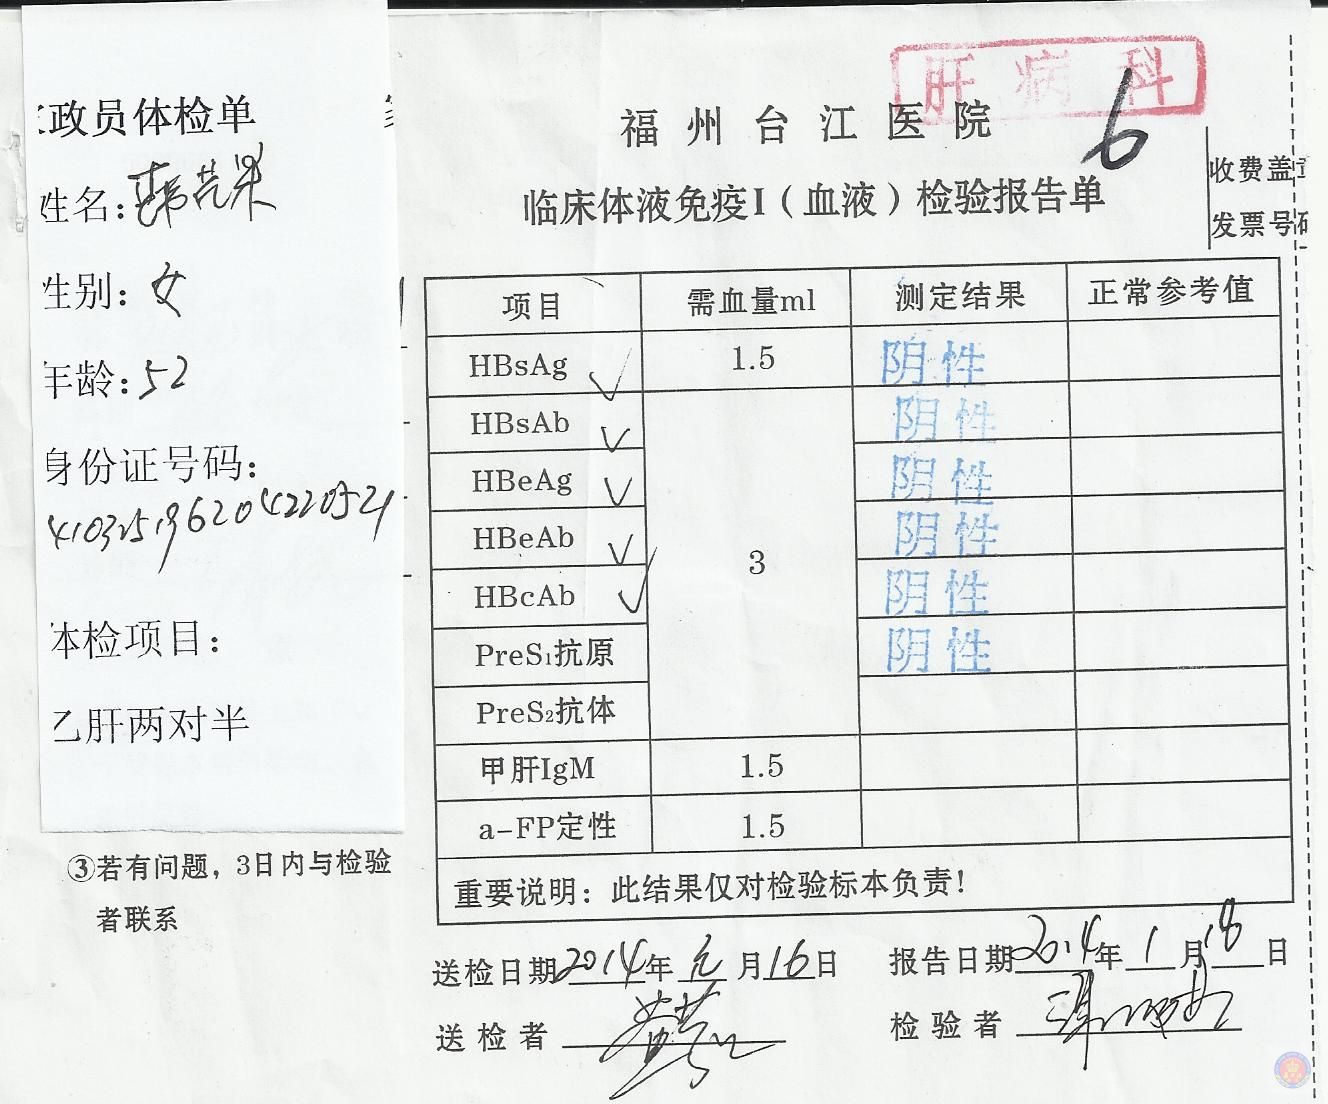 政员体检单
姓名:韩芑果
性别: 女
年龄:52
身份证号码:
体检项目:
乙肝两对半
③若有问题，3日内与检验
者联系
肝病科
福州台江医院
6
临床体液免疫I（血液）检验报告单
收费盖
发票号码
项目 需血量ml 测定结果 正常参考值
HBsAg ✓ 1.5 阴性
HBsAb ✓ 阴性
HBeAg ✓ 阴性
HBeAb ✓ 3 阴性
HBcAb ✓ 阴性
PreS₁抗原 阴性
PreS₂抗体
甲肝IgM 1.5
a-FP定性 1.5
重要说明：此结果仅对检验标本负责!
送检日期2014年元月16日 报告日期2014年1月18日
送检者 检验者